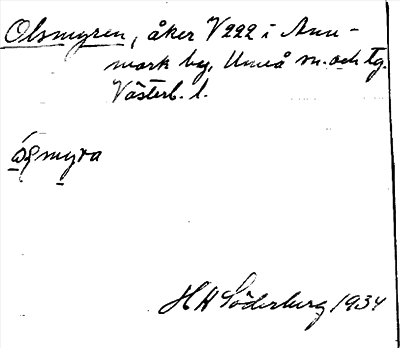 Olsmyren, åker V222 i Ann-
mark by, Umeå sn. och tg.
Västerb. l.
myra
HW Söderberg 1934